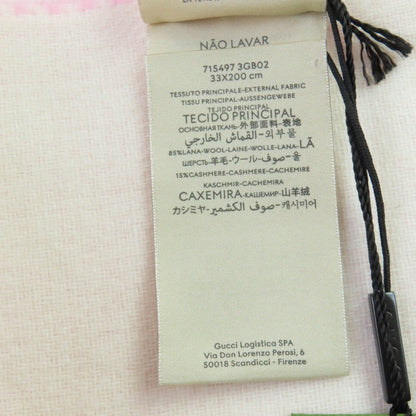 NÃO LAVAR
715497 3GB02
33X200 cm
TESSUTO PRINCIPALE-EXTERNAL FABRIC
TISSU PRINCIPAL-AUSSENGEWEBE
TEJIDO PRINCIPAL
TECIDO PRINCIPAL
ОСНОВНАЯ ТКАНЬ-外部面料-表地
القماش الخارجي-외부 올
85%LANA-WOOL-LAINE-WOLLE-LANA-LÃ
ШЕРСТЬ-羊毛-ウール-صوف-울
15%CASHMERE-CASHMERE-CACHEMIRE
KASCHMIR-CACHEMIRA
CAXEMIRA-КАШЕМИР-山羊绒
カシミヤ-صوف الكشمير-캐시미어
Gucci Logistica SPA
Via Don Lorenzo Perosi, 6
50018 Scandicci - Firenze